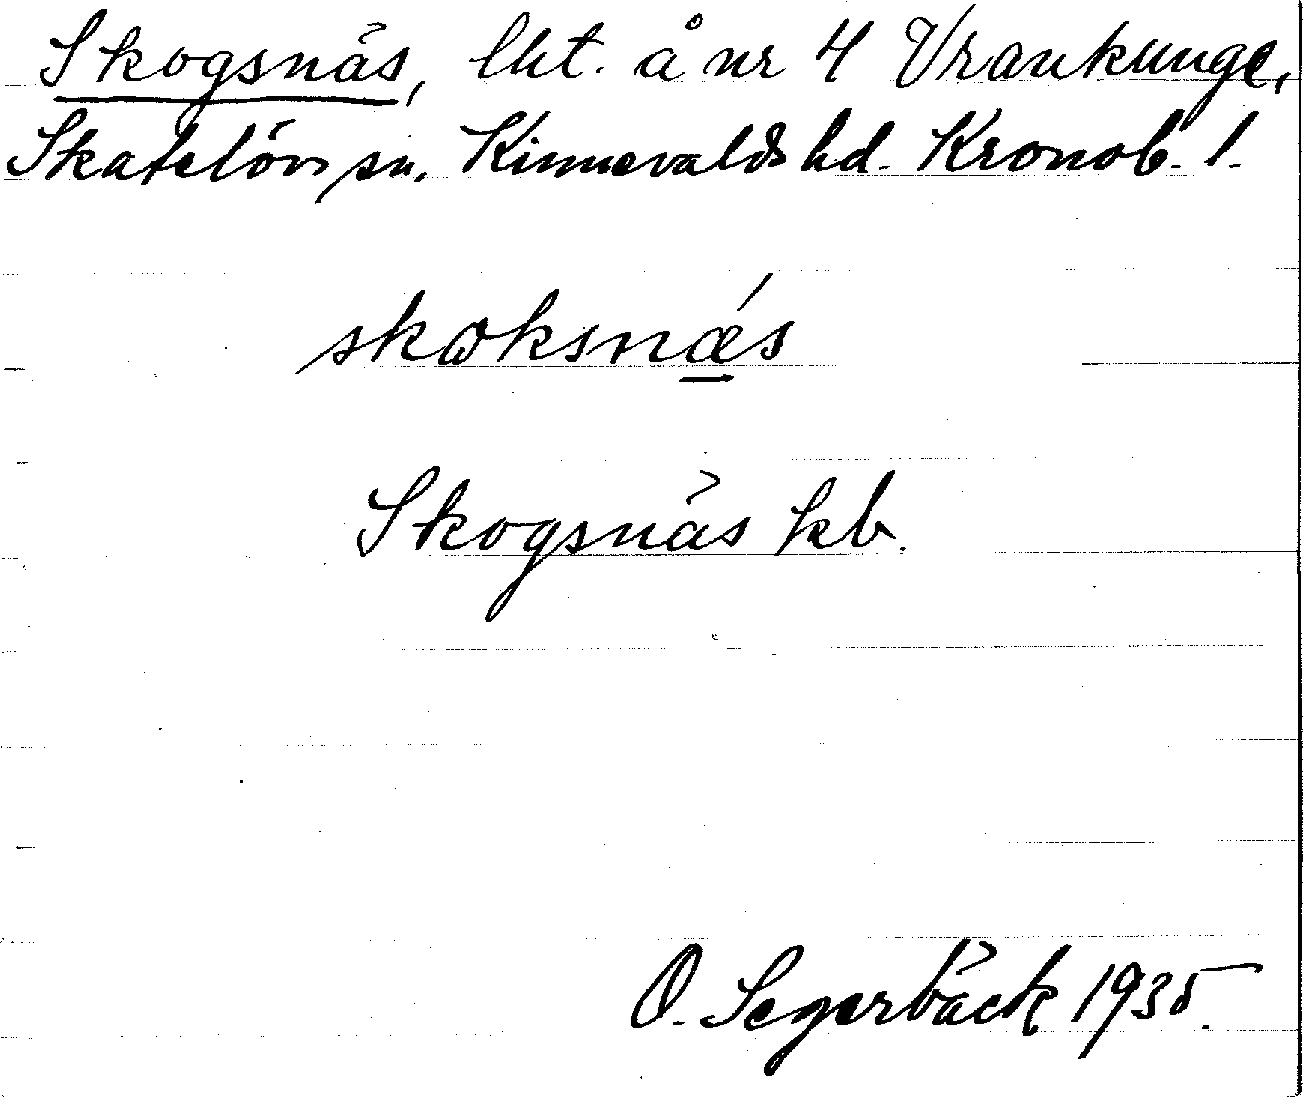 Skogsnäs, lht. å nr 4 Vrankunge,
Skatelövs sn. Kinnevalds hd. Kronob. l.
skoksnæ´s
Skogsnäs kb.
O. Segerbäck 1935.